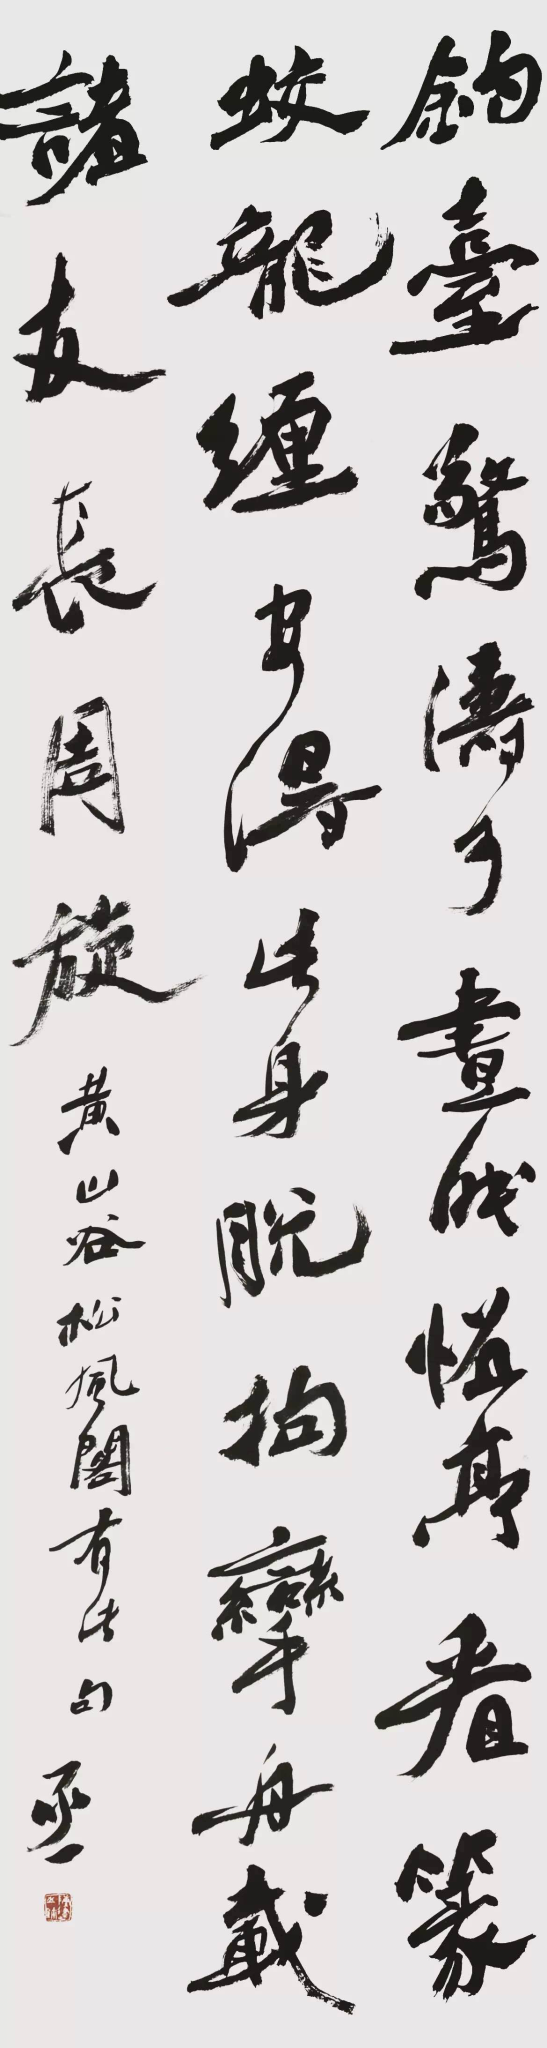 釣臺驚濤可晝眠怡亭看篆
蛟龍纏安得此身脫拘攣舟載
諸友長周旋黃山谷松風閣有此句